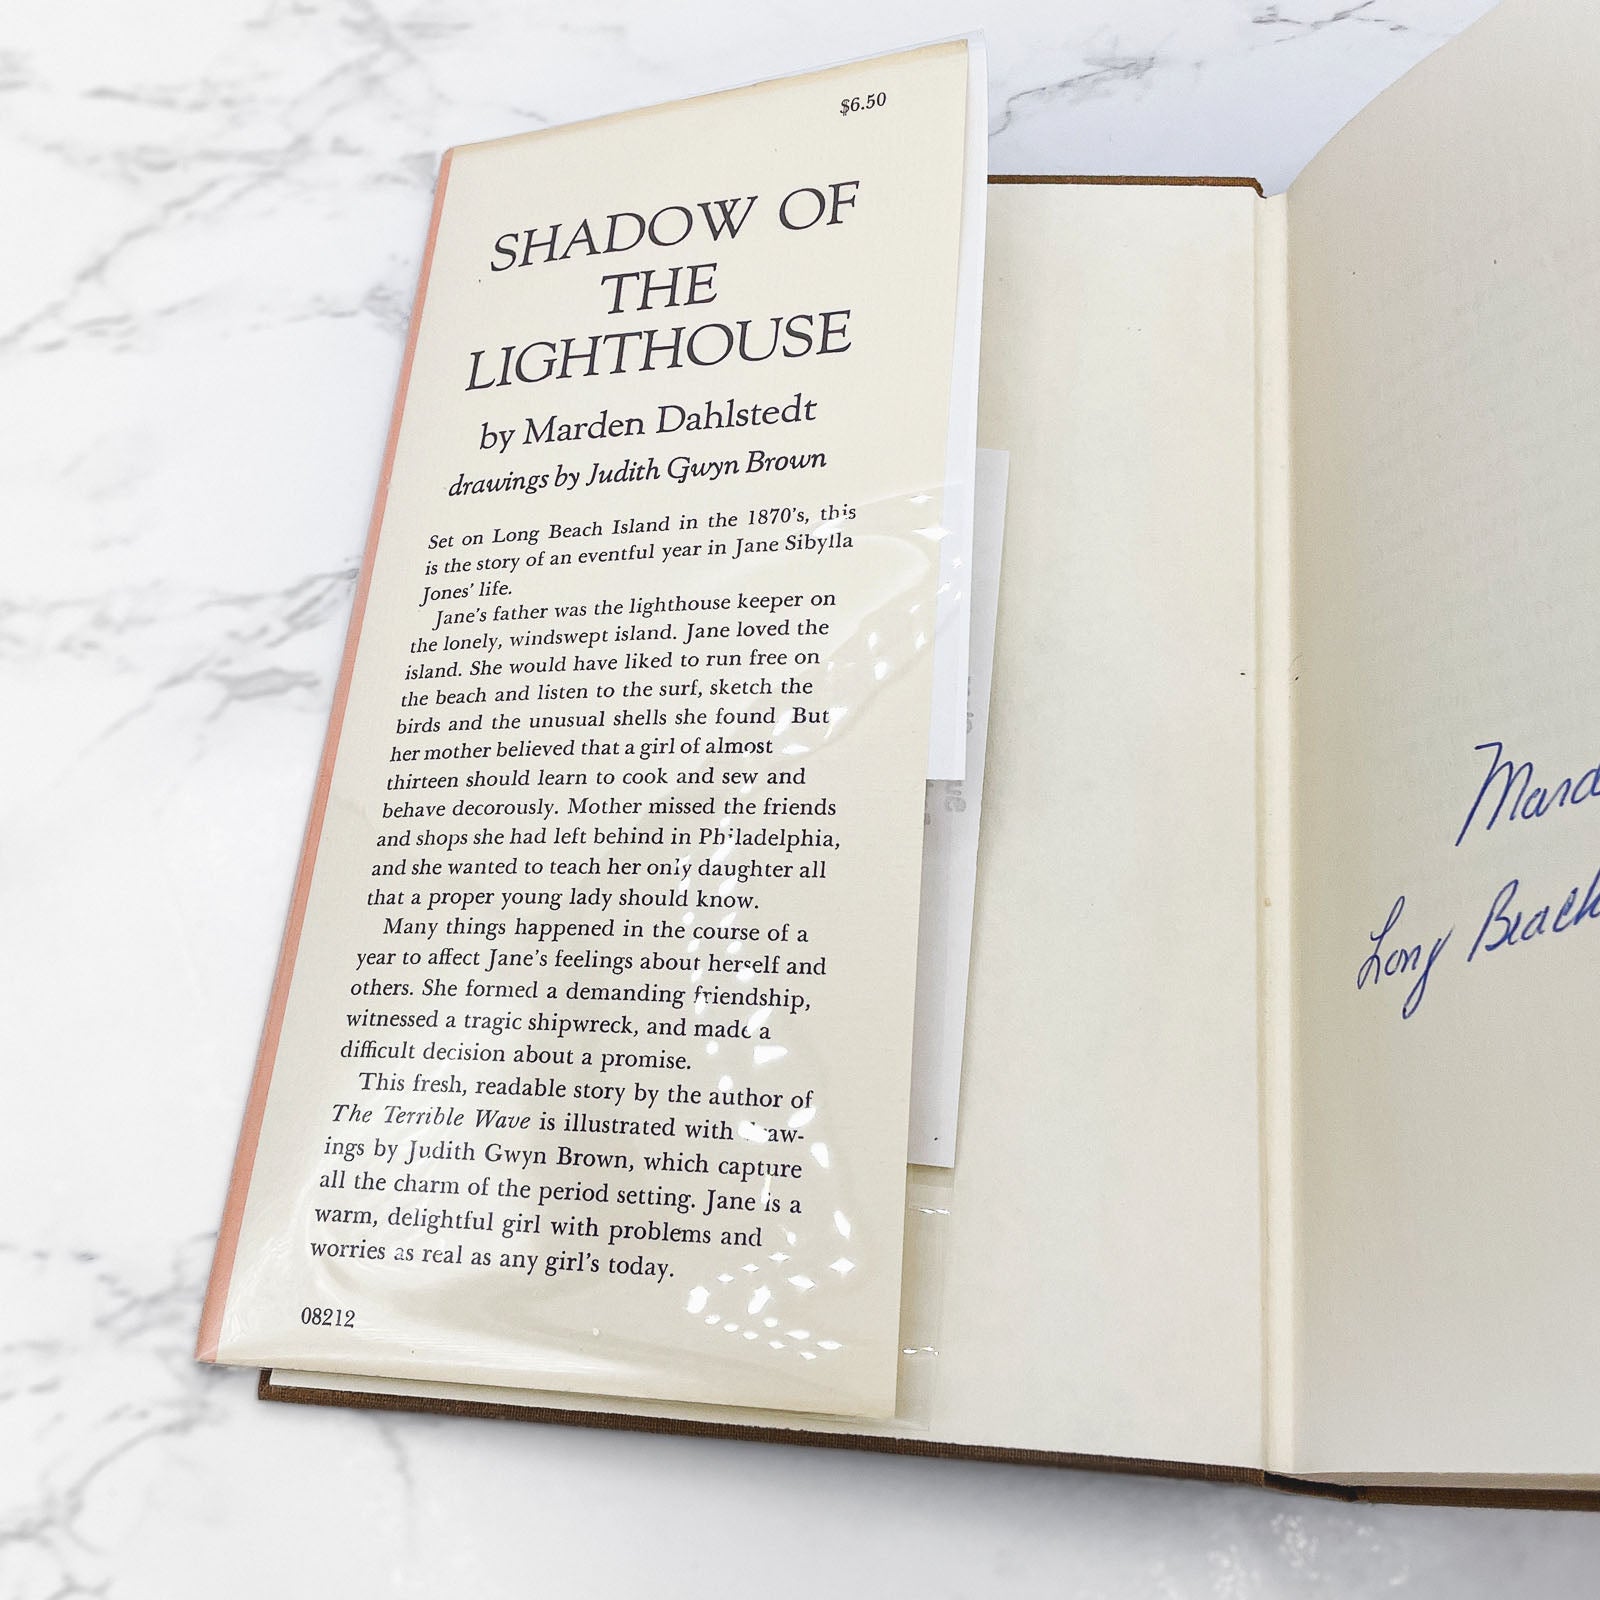 $6.50
SHADOW OF
THE
LIGHTHOUSE
by Marden Dahlstedt
drawings by Judith Gwyn Brown
Set on Long Beach Island in the 1870's, this
is the story of an eventful year in Jane Sibylla
Jones' life.
Jane's father was the lighthouse keeper on
the lonely, windswept island. Jane loved the
island. She would have liked to run free on
the beach and listen to the surf, sketch the
birds and the unusual shells she found But
her mother believed that a girl of almost
thirteen should learn to cook and sew and
behave decorously. Mother missed the friends
and shops she had left behind in Philadelphia,
and she wanted to teach her only daughter all
that a proper young lady should know.
Many things happened in the course of a
year to affect Jane's feelings about herself and
others. She formed a demanding friendship,
witnessed a tragic shipwreck, and made a
difficult decision about a promise.
This fresh, readable story by the author of
The Terrible Wave is illustrated with draw-
ings by Judith Gwyn Brown, which capture
all the charm of the period setting. Jane is a
warm, delightful girl with problems and
worries as real as any girl's today.
08212
Mard
Long Beach